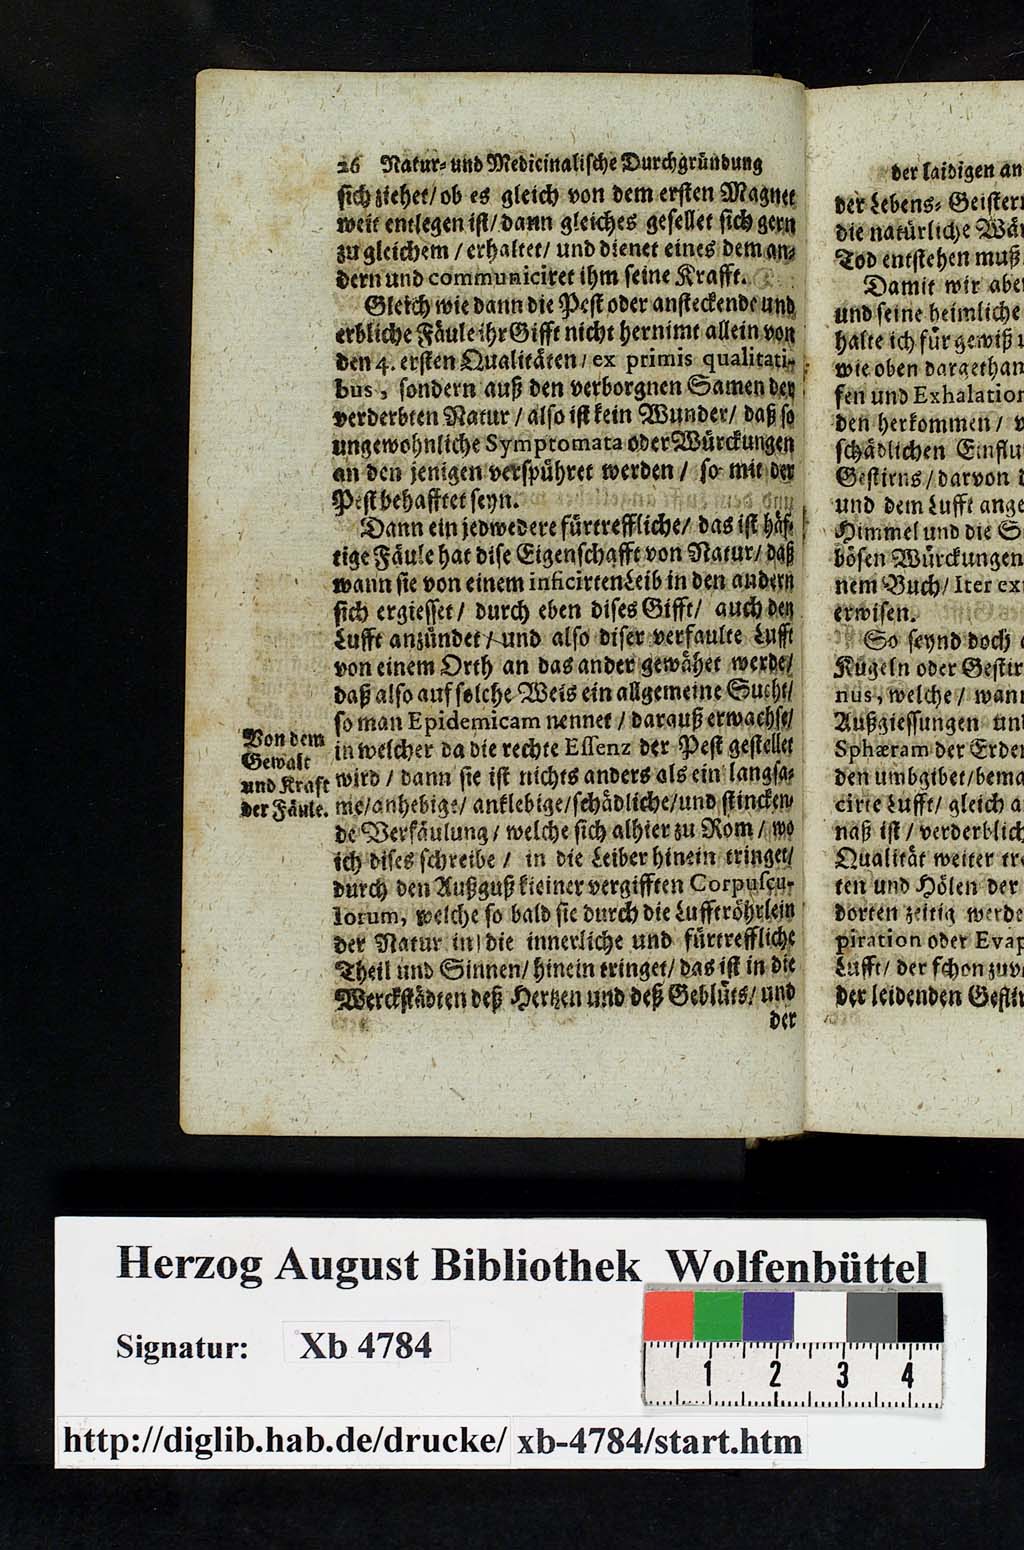 26 Natur- und Medicinalische Durchgründung
sich ziehet/ ob es gleich von dem ersten Magnet
weit entlegen ist/ dann gleiches gesellet sich gern
zu gleichem / erhaltet/ und dienet eines dem an-
dern und communiciret ihm seine Krafft.
Gleich wie dann die Pest oder ansteckende und
erbliche Fäule ihr Gifft nicht hernimt allein von
den 4. ersten Qualitäten / ex primis qualitati-
bus, sondern auß den verborgnen Samen der
verderbten Natur / also ist kein Wunder/ daß so
ungewohnliche Symptomata oder Würckungen
an den jenigen verspühret werden / so mit der
Pest behafftet seyn.
Dann ein jedwedere fürtreffliche/ das ist häf-
tige Fäule hat dise Eigenschafft von Natur/ daß
wann sie von einem inficirten Leib in den andern
sich ergiesset/ durch eben dises Gifft/ auch den
Lufft anzündet / und also diser verfaulte Lufft
von einem Orth an das ander gewähet werde/
daß also auf solche Weis ein allgemeine Sucht/
so man Epidemicam nennet / darauß erwachse/
in welcher da die rechte Essenz der Pest gestellet
wird / dann sie ist nichts anders als ein langsa-
me/ anhebige/ anklebige/ schädliche/ und stincken-
de Verfäulung / welche sich alhier zu Rom / wo
ich dises schreibe / in die Leiber hinein tringet/
durch den Außguß kleiner vergifften Corpuscu-
lorum, welche so bald sie durch die Lufftröhrlein
der Natur in die innerliche und fürtreffliche
Theil und Sinnen/ hinein tringet/ das ist in die
Werckstädten deß Hertzen und deß Geblüts/ und
der
Von dem
Gewalt
und Kraft
der Fäule.
der laidigen an
der Lebens- Geister
die natürliche Wär
Tod entstehen muß
Damit wir aber
und seine heimliche
halte ich für gewiß
wie oben dargethan
fen und Exhalation
den herkommen /
schädlichen Einflu
Gestirns / darvon
und dem Lufft ange
Himmel und die S
bösen Würckungen
nem Buch/ Iter ex
erwisen.
So seynd doch
Kugeln oder Gestir
nus, welche / wann
Außgiessungen un
Sphæram der Erden
den umbgibet/ bema
cirte Lufft/ gleich a
naß ist / verderblich
Qualität weiter tr
ten und Hölen der
dorten zeitig werde
piration oder Evap
Lufft/ der schon zuv
der leidenden Gestir
Herzog August Bibliothek Wolfenbüttel
Signatur: Xb 4784
1 2 3 4
http://diglib.hab.de/drucke/ xb-4784/start.htm